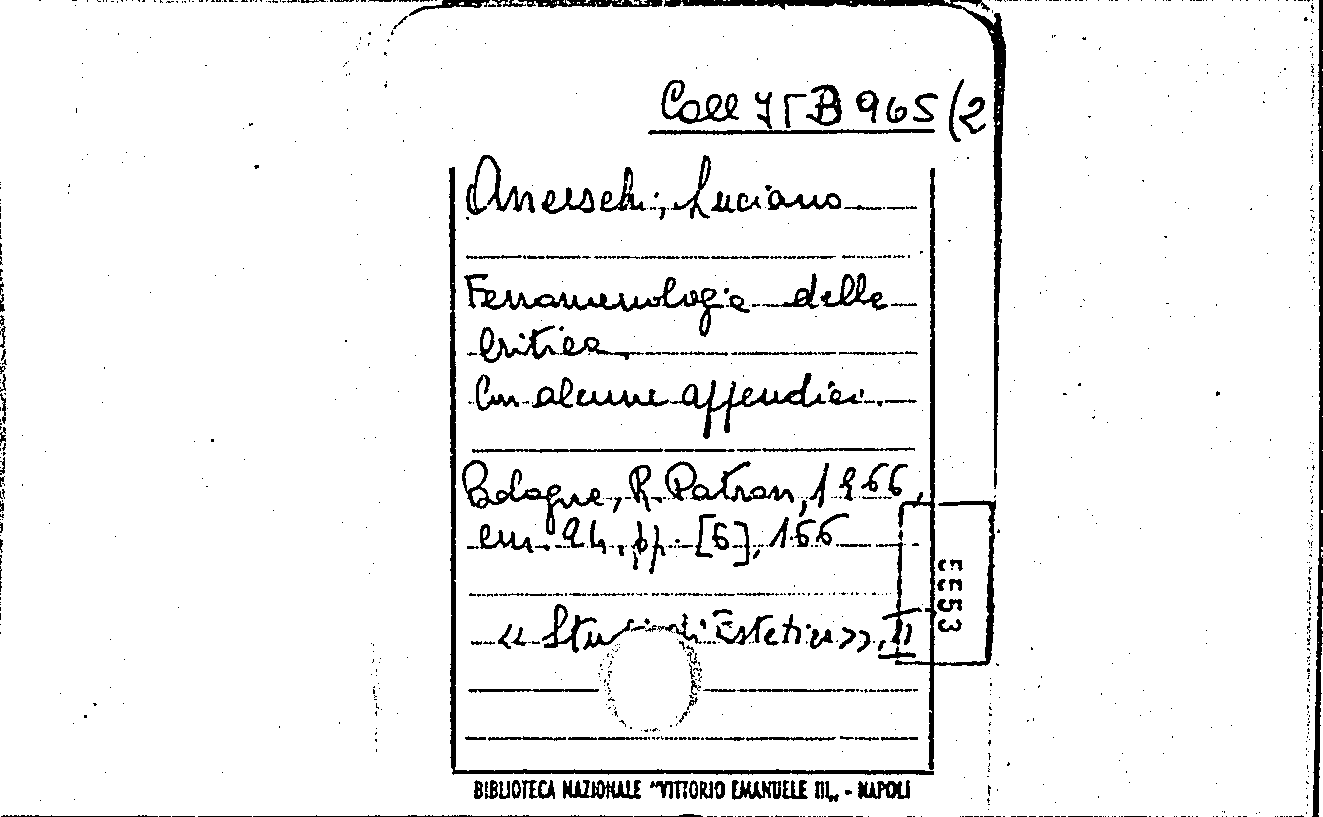 Coll. IT B 965/2
Anceschi, Luciano.
Fenomenologia della
critica.
Con alcune appendici.
Bologna, R. Patron, 1966,
cm. 24, pp. [6], 166
« Studi di Estetica », II
5553
BIBLIOTECA NAZIONALE "VITTORIO EMANUELE III„ - NAPOLI